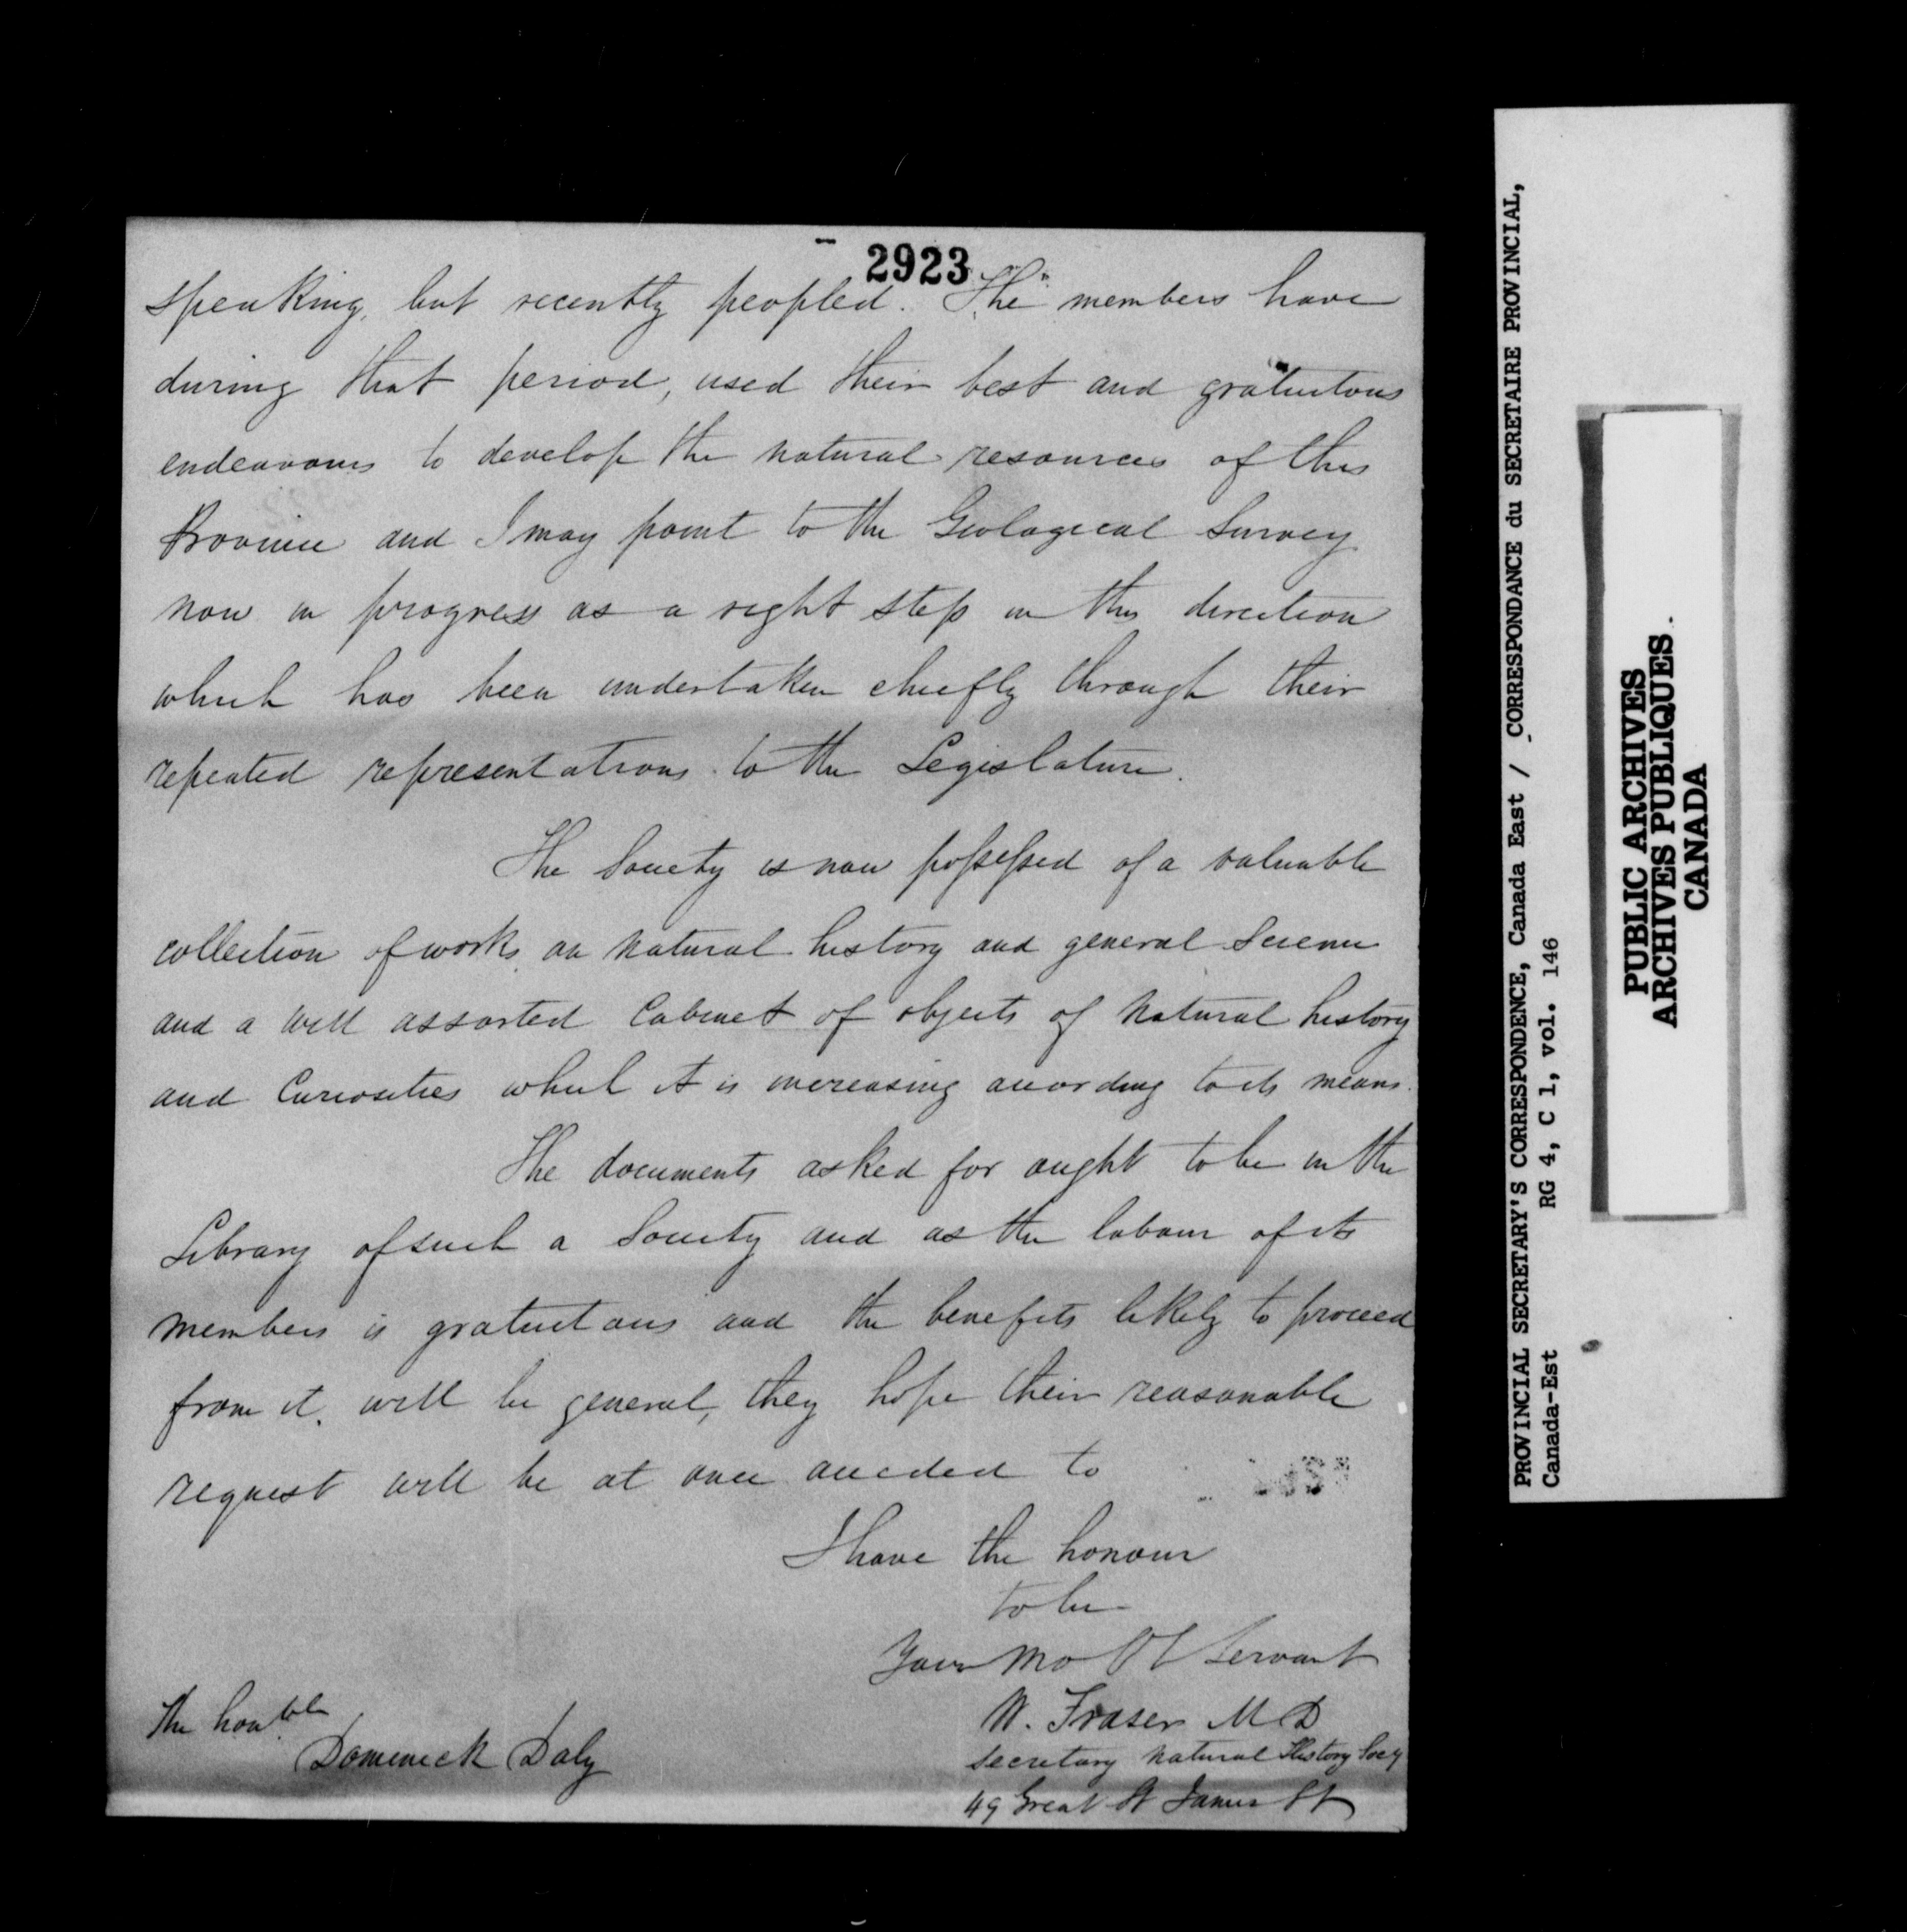 2923
speaking, but recently peopled. The members have
during that period, used their best and gratuitous
endeavours to develop the natural resources of this
Province and I may point to the Geological Survey
now in progress as a right step in this direction
which has been undertaken chiefly through their
repeated representations to the Legislature.
The Society is now possessed of a valuable
collection of works on natural history and general Science
and a well assorted Cabinet of objects of Natural history
and Curiosities which it is increasing according to its means.
The documents asked for ought to be in the
Library of such a Society and as the labour of its
members is gratuitous and the benefits likely to proceed
from it, will be general, they hope their reasonable
request will be at once acceded to
I have the honour
to be
Your Mo Ot Servant
W. Fraser M D
Secretary Natural History Socy
49 Great St James St
The honble
Dominick Daly
PROVINCIAL SECRETARY'S CORRESPONDENCE, Canada East / CORRESPONDANCE du SECRETAIRE PROVINCIAL,
Canada-Est RG 4, C 1, vol. 146
PUBLIC ARCHIVES
ARCHIVES PUBLIQUES
CANADA